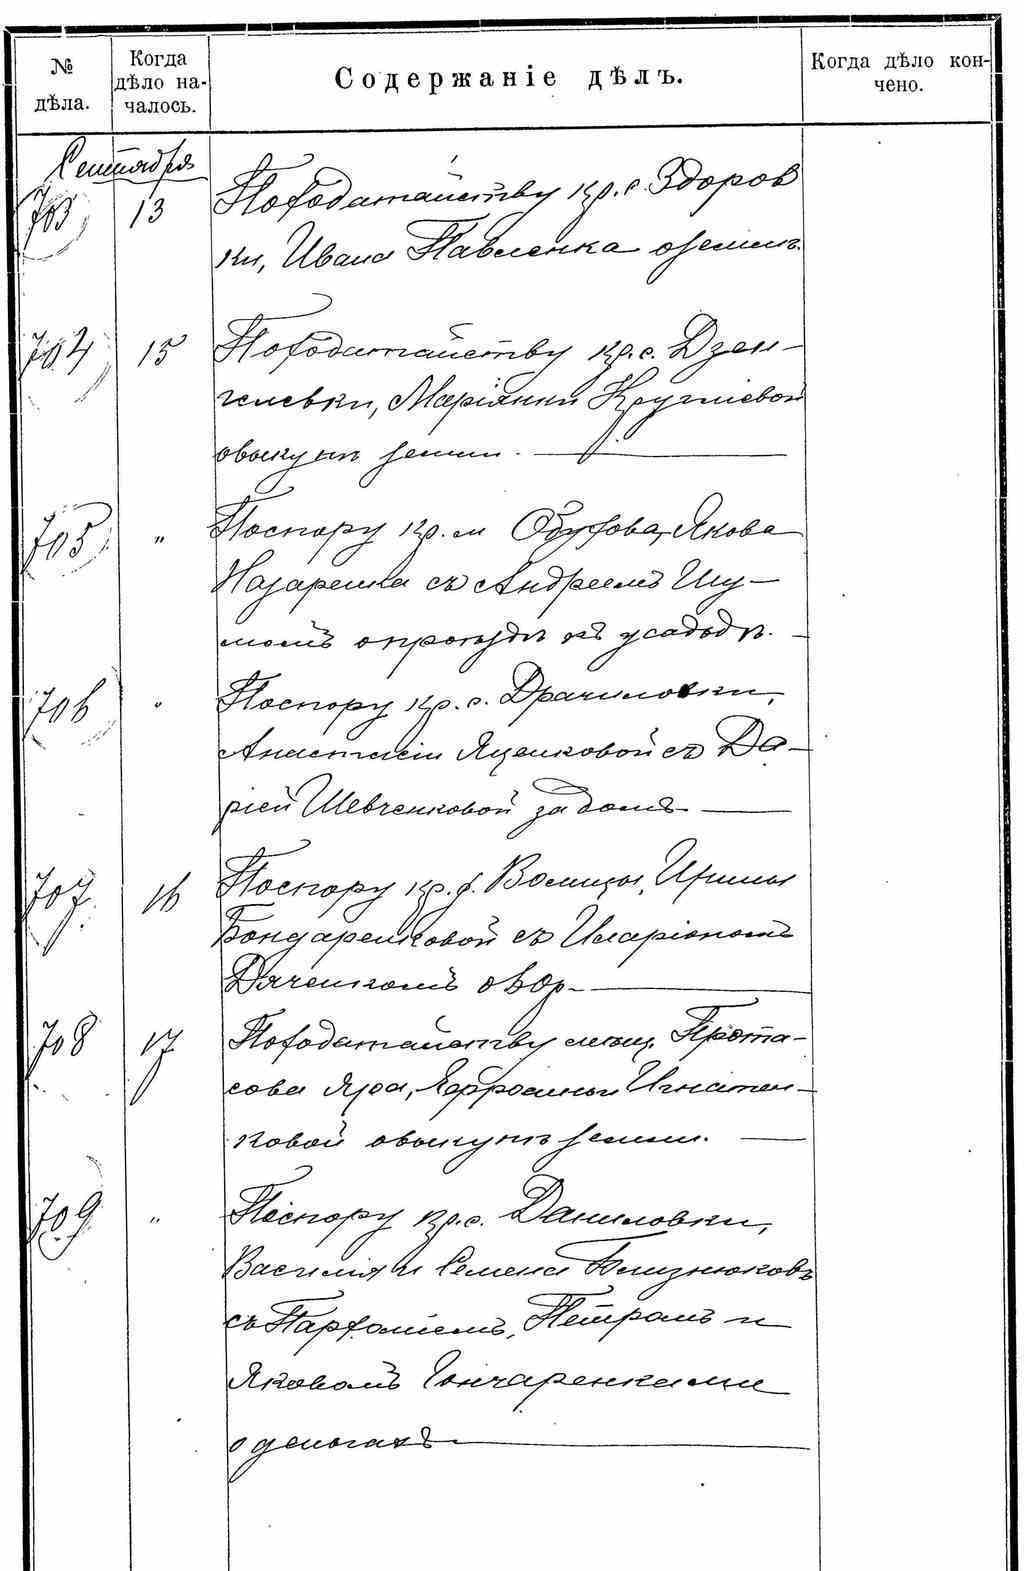 № дѣла.
Когда дѣло на-
чалось.
Содержаніе дѣлъ.
Когда дѣло кон-
чено.
Сентября
703 13 По ходатайству кр. с. Здоров
ки, Ивана Павленка о землѣ
704 15 По ходатайству кр. с. Дзен-
гелевки, Маріянны Кругліевой
о выкупѣ земли.
705 " По спору кр. м. Обухова, Якова
Назаренка съ Андреемъ Шу-
момъ о проѣздѣ къ усадьбѣ.
706 " По спору кр. с. Драчиловки,
Анастасіи Яценковой съ Да-
ріей Шевченковой за домъ
707 16 По спору кр. д. Волицы, Ирины
Бондаренковой съ Иларіономъ
Дяченкомъ о
708 17 По ходатайству мѣщ. Прота-
сова Яра, Ефросиньи Игнатен-
ковой о выкупѣ земли.
709 " По спору кр. с. Даниловки,
Василія и Семена Близнюковъ
съ Парфеніемъ, Петромъ и
Яковомъ Гончаренками
о деньгахъ